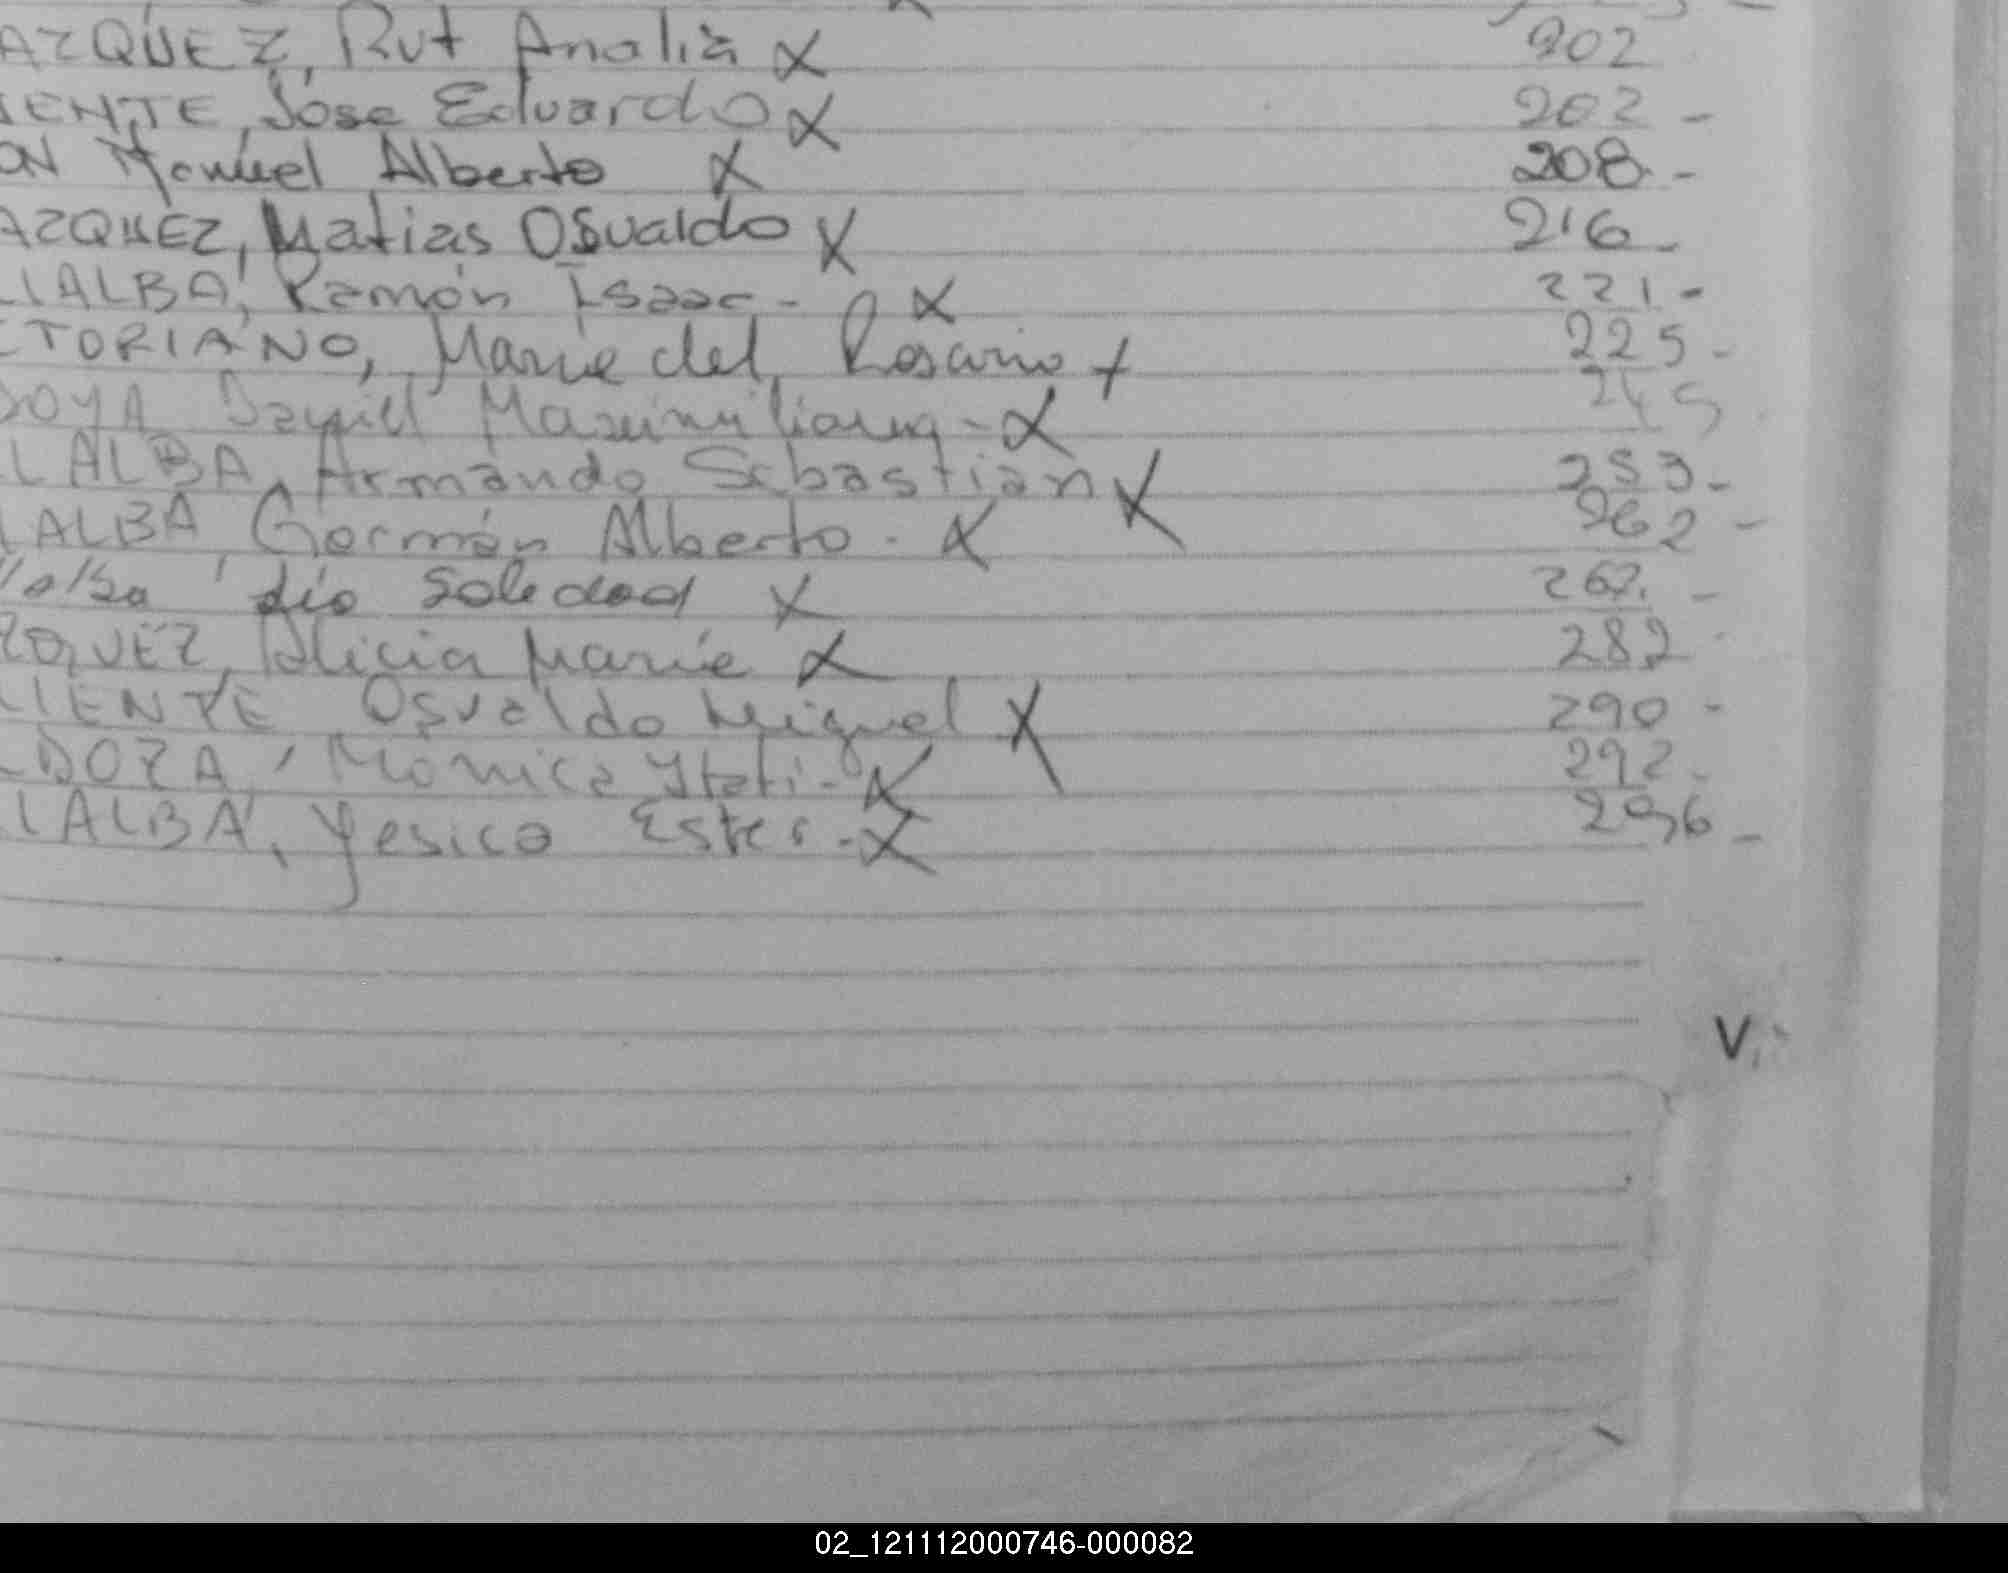 AZQUEZ, Rut Analia X 202
IENTE, Jose Eduardo X 202 -
ON Manuel Alberto X 208 -
AZQUEZ, Matias Osvaldo X 216 -
LIALBA, Ramón Isaac - X 221 -
CTORIANO, Marie del Rosario + 225 -
DOYA Maximiliano - X 245
LLALBA, Armando Sebastian X 253 -
LALBA Germán Alberto - X 262 -
lalba Soledad X 267. -
ZQUEZ, Alicia Marie X 282
LIENTE Osvaldo Miguel X 290 -
LDOZA, Mónica Itati - X 292 -
LALBA, Yesica Ester - X 296 -
V
02_121112000746-000082